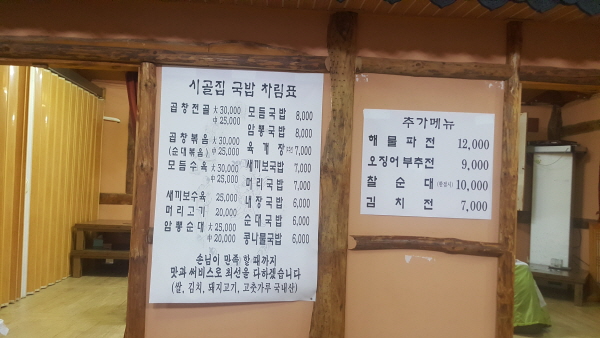 시골집 국밥 차림표
곱창전골 大 30,000
中 25,000
곱창볶음 大 30,000
(순대볶음) 中 25,000
모듬수육 大 30,000
中 25,000
새끼보수육 25,000
머리고기 20,000
암뽕순대 大 25,000
中 20,000
모듬국밥 8,000
암뽕국밥 8,000
육개장 7,000
새끼보국밥 7,000
머리국밥 7,000
내장국밥 6,000
순대국밥 6,000
콩나물국밥 6,000
손님이 만족 할 때까지
맛과 써비스로 최선을 다하겠습니다
(쌀, 김치, 돼지고기, 고춧가루 국내산)
추가메뉴
해물파전 12,000
오징어부추전 9,000
찰순대 10,000
김치전 7,000